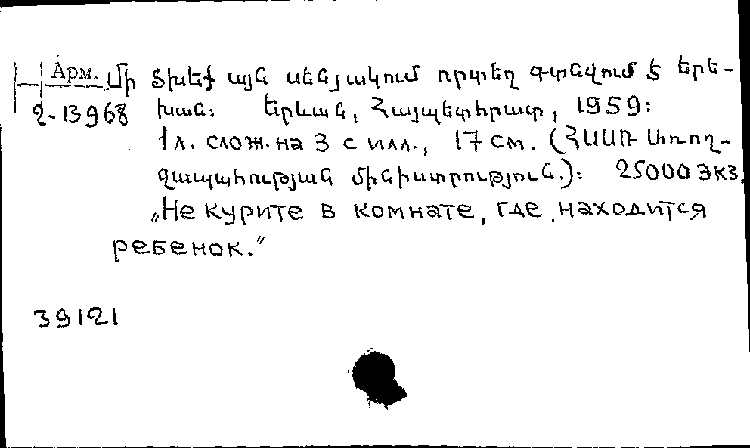 Арм. Մի ծխեք այն սենյակում որտեղ գտնվում է երե-
2-13968 խան: Երևան, Հայպետհրատ, 1959:
1 л. слож. на 3 с илл., 17 см. (ՀՍՍՌ Առող-
ջապահության մինիստրություն.): 25000 экз.
„Не курите в комнате, где находится
ребенок."
39121